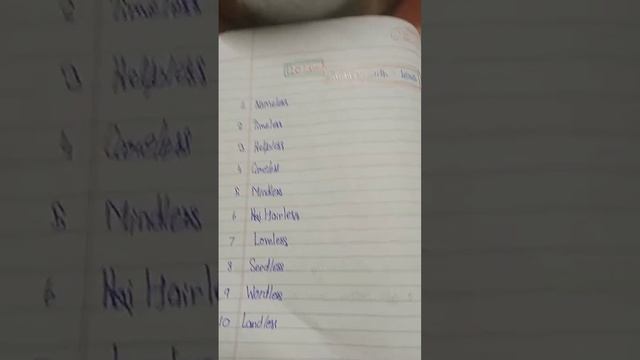 1 Nameless
2 Timeless
3 Helpless
4 Careless
5 Mindless
6 Hairless
7 Loveless
8 Seedless
9 Wordless
10 Landless